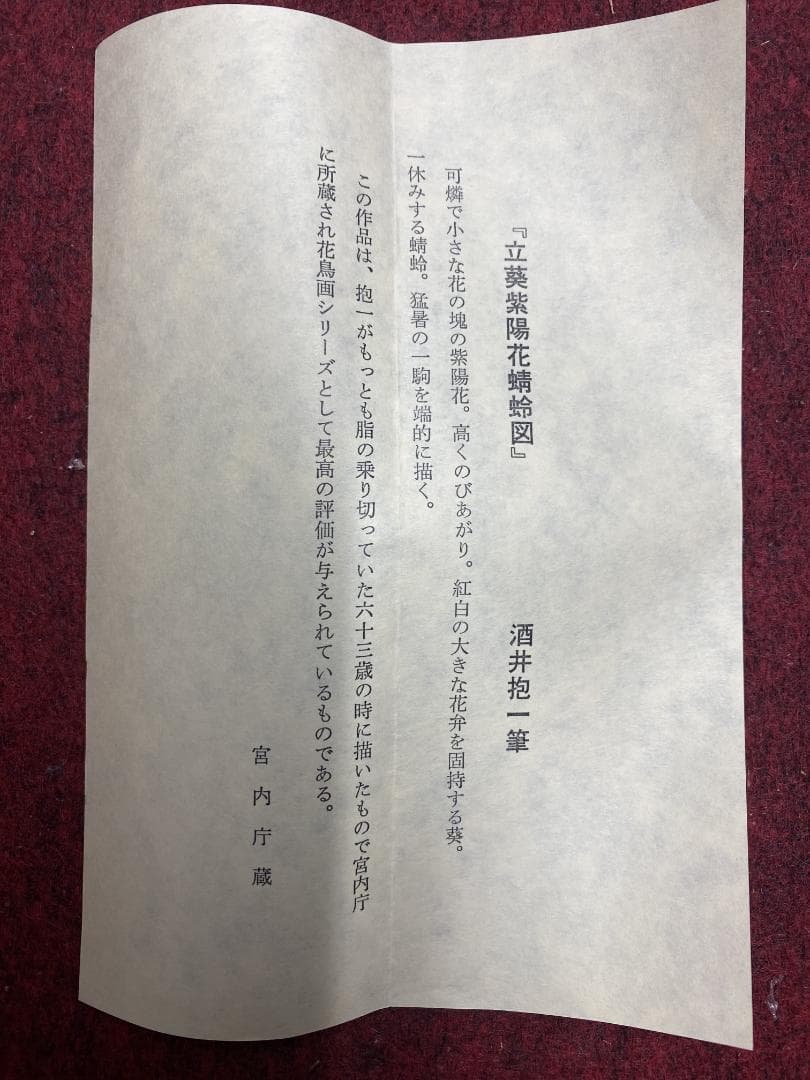 『立葵紫陽花蜻蛉図』　酒井抱一筆
可憐で小さな花の塊の紫陽花。高くのびあがり。紅白の大きな花弁を固持する葵。
一休みする蜻蛉。猛暑の一駒を端的に描く。
この作品は、抱一がもっとも脂の乗り切っていた六十三歳の時に描いたもので宮内庁
に所蔵され花鳥画シリーズとして最高の評価が与えられているものである。
宮内庁蔵